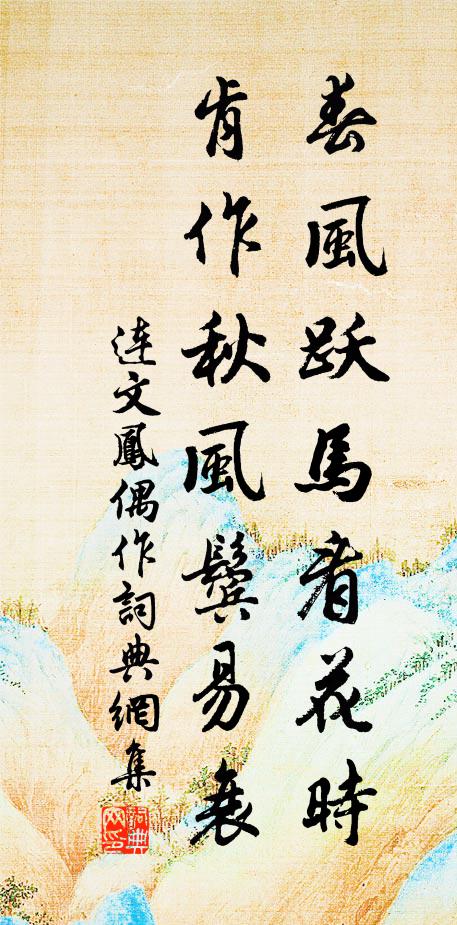 春風跃馬看花時
肯作秋風鬓易衰
连文鳳偶作詞典網集
詞典